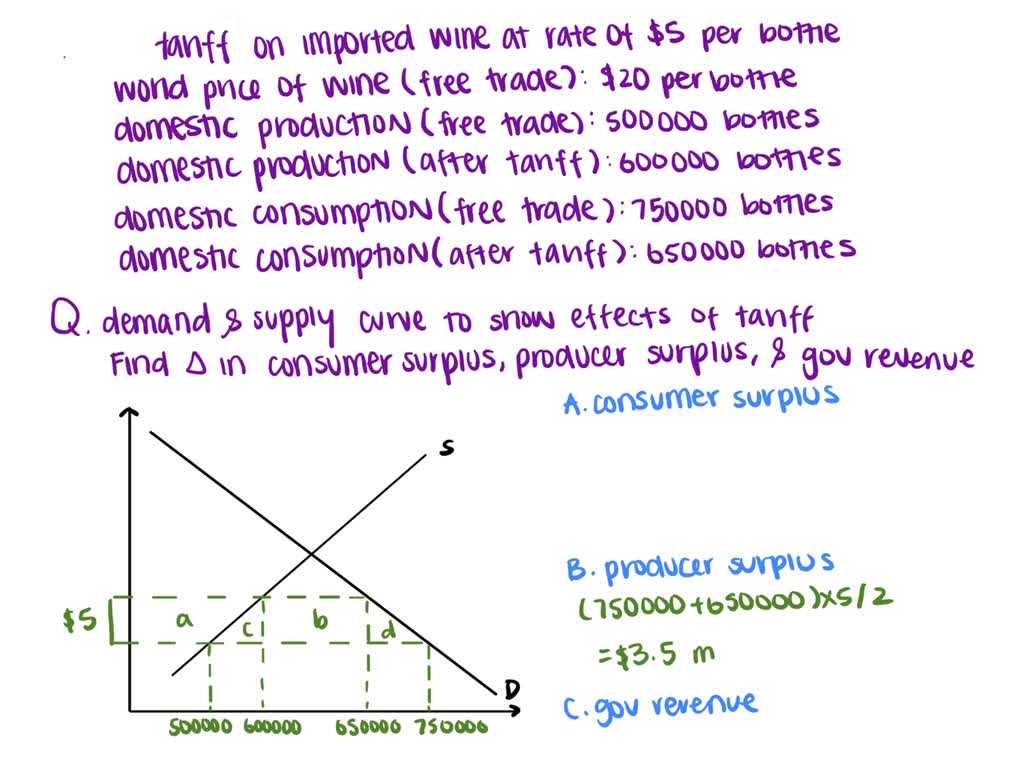 tariff on imported wine at rate of $5 per bottle
world price of wine (free trade): $20 per bottle
domestic production (free trade): 500000 bottles
domestic production (after tariff): 600000 bottles
domestic consumption (free trade): 750000 bottles
domestic consumption (after tariff): 650000 bottles
Q. demand & supply curve to show effects of tariff
Find Δ in consumer surplus, producer surplus, & gov revenue
A. consumer surplus
S
B. producer surplus
(750000+650000)×5/2
$5
a
c
b
d
=$3.5 m
D
C. gov revenue
500000 600000 650000 750000